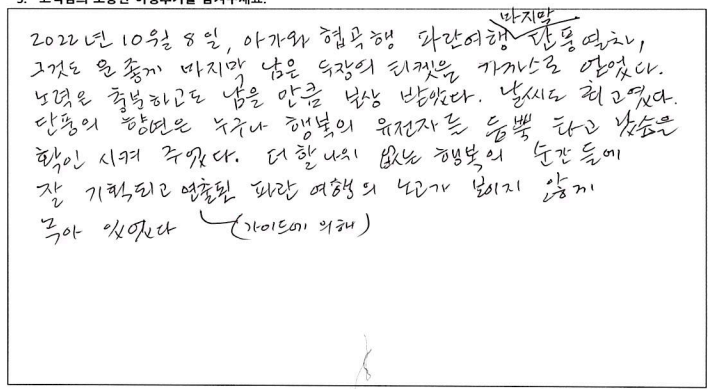 3. 고객님의 소중한 여행후기를 남겨주세요.
마지막
2022년 10월 8일, 아가와 협곡행 파란여행 단풍열차,
그것도 운좋게 마지막 남은 두장의 티켓을 가까스로 얻었다.
노력은 충분하고도 남을 만큼 보상 받았다. 날씨도 최고였다.
단풍의 향연은 누구나 행복의 유전자를 듬뿍 타고 났음을
확인 시켜 주었다. 더할 나위 없는 행복의 순간 들에
잘 기획되고 연출된 파란 여행의 노고가 보이지 않게
녹아 있었다 (가이드에 의해)